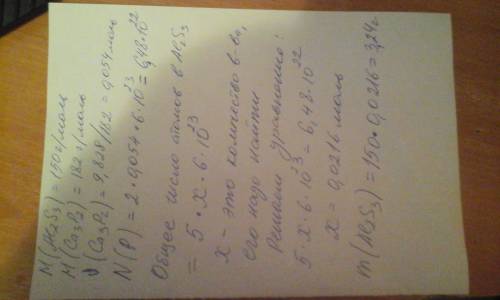 M(Al2S3) = 150 г/моль
M(Ca3P2) = 182 г/моль
ν(Ca3P2) = 9,828/182 = 0,054 моль
N(P) = 2·0,054·6·10^23 = 6,48·10^22
Общее число атомов в Al2S3
= 5·x·6·10^23
x – это количество в-ва,
его надо найти
Решаем уравнение:
5·x·6·10^23 = 6,48·10^22
x = 0,0216 моль
m(Al2S3) = 150·0,0216 = 3,24 г